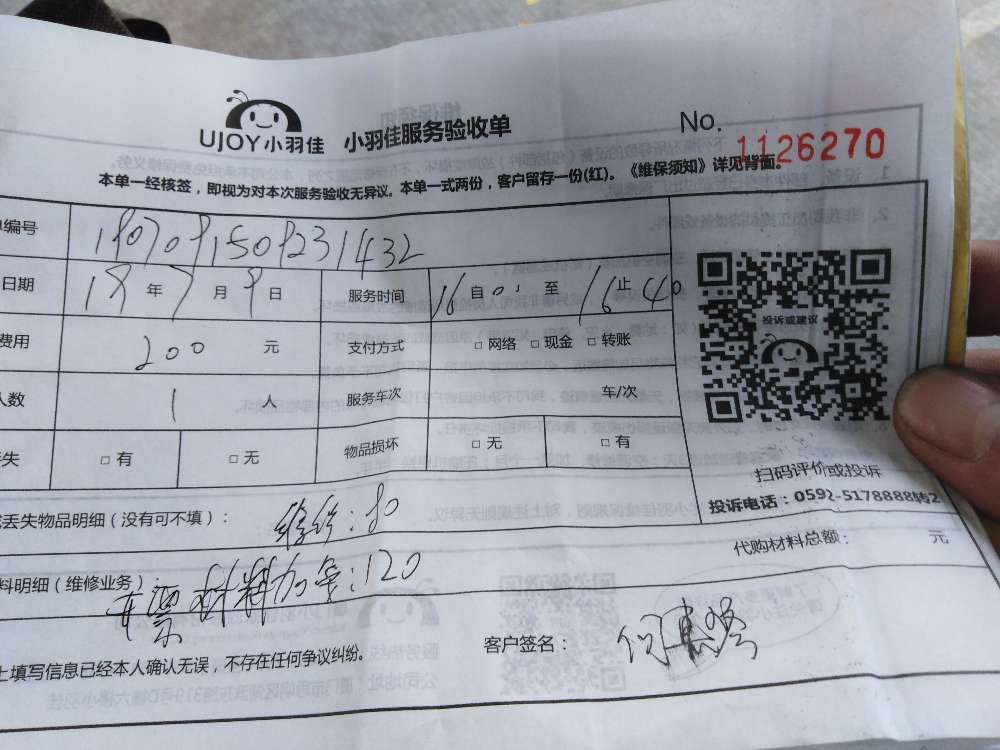 UJOY小羽佳 小羽佳服务验收单 No. 1126270
本单一经核签，即视为对本次服务验收无异议。本单一式两份，客户留存一份(红)。《维保须知》详见背面。
单编号
日期 19 年 7 月 9 日 服务时间 16 自 01 至 16 止 40
费用 200 元 支付方式 □ 网络 □ 现金 □ 转账
人数 1 人 服务车次 车/次
失 □ 有 □ 无 物品损坏 □ 无 □ 有
投诉或建议
扫码评价或投诉
投诉电话：0592-5178888转2
丢失物品明细（没有可不填）： 维修：80
代购材料总额： 元
料明细（维修业务）： 材料加氟：120
上填写信息已经本人确认无误，不存在任何争议纠纷。 客户签名：